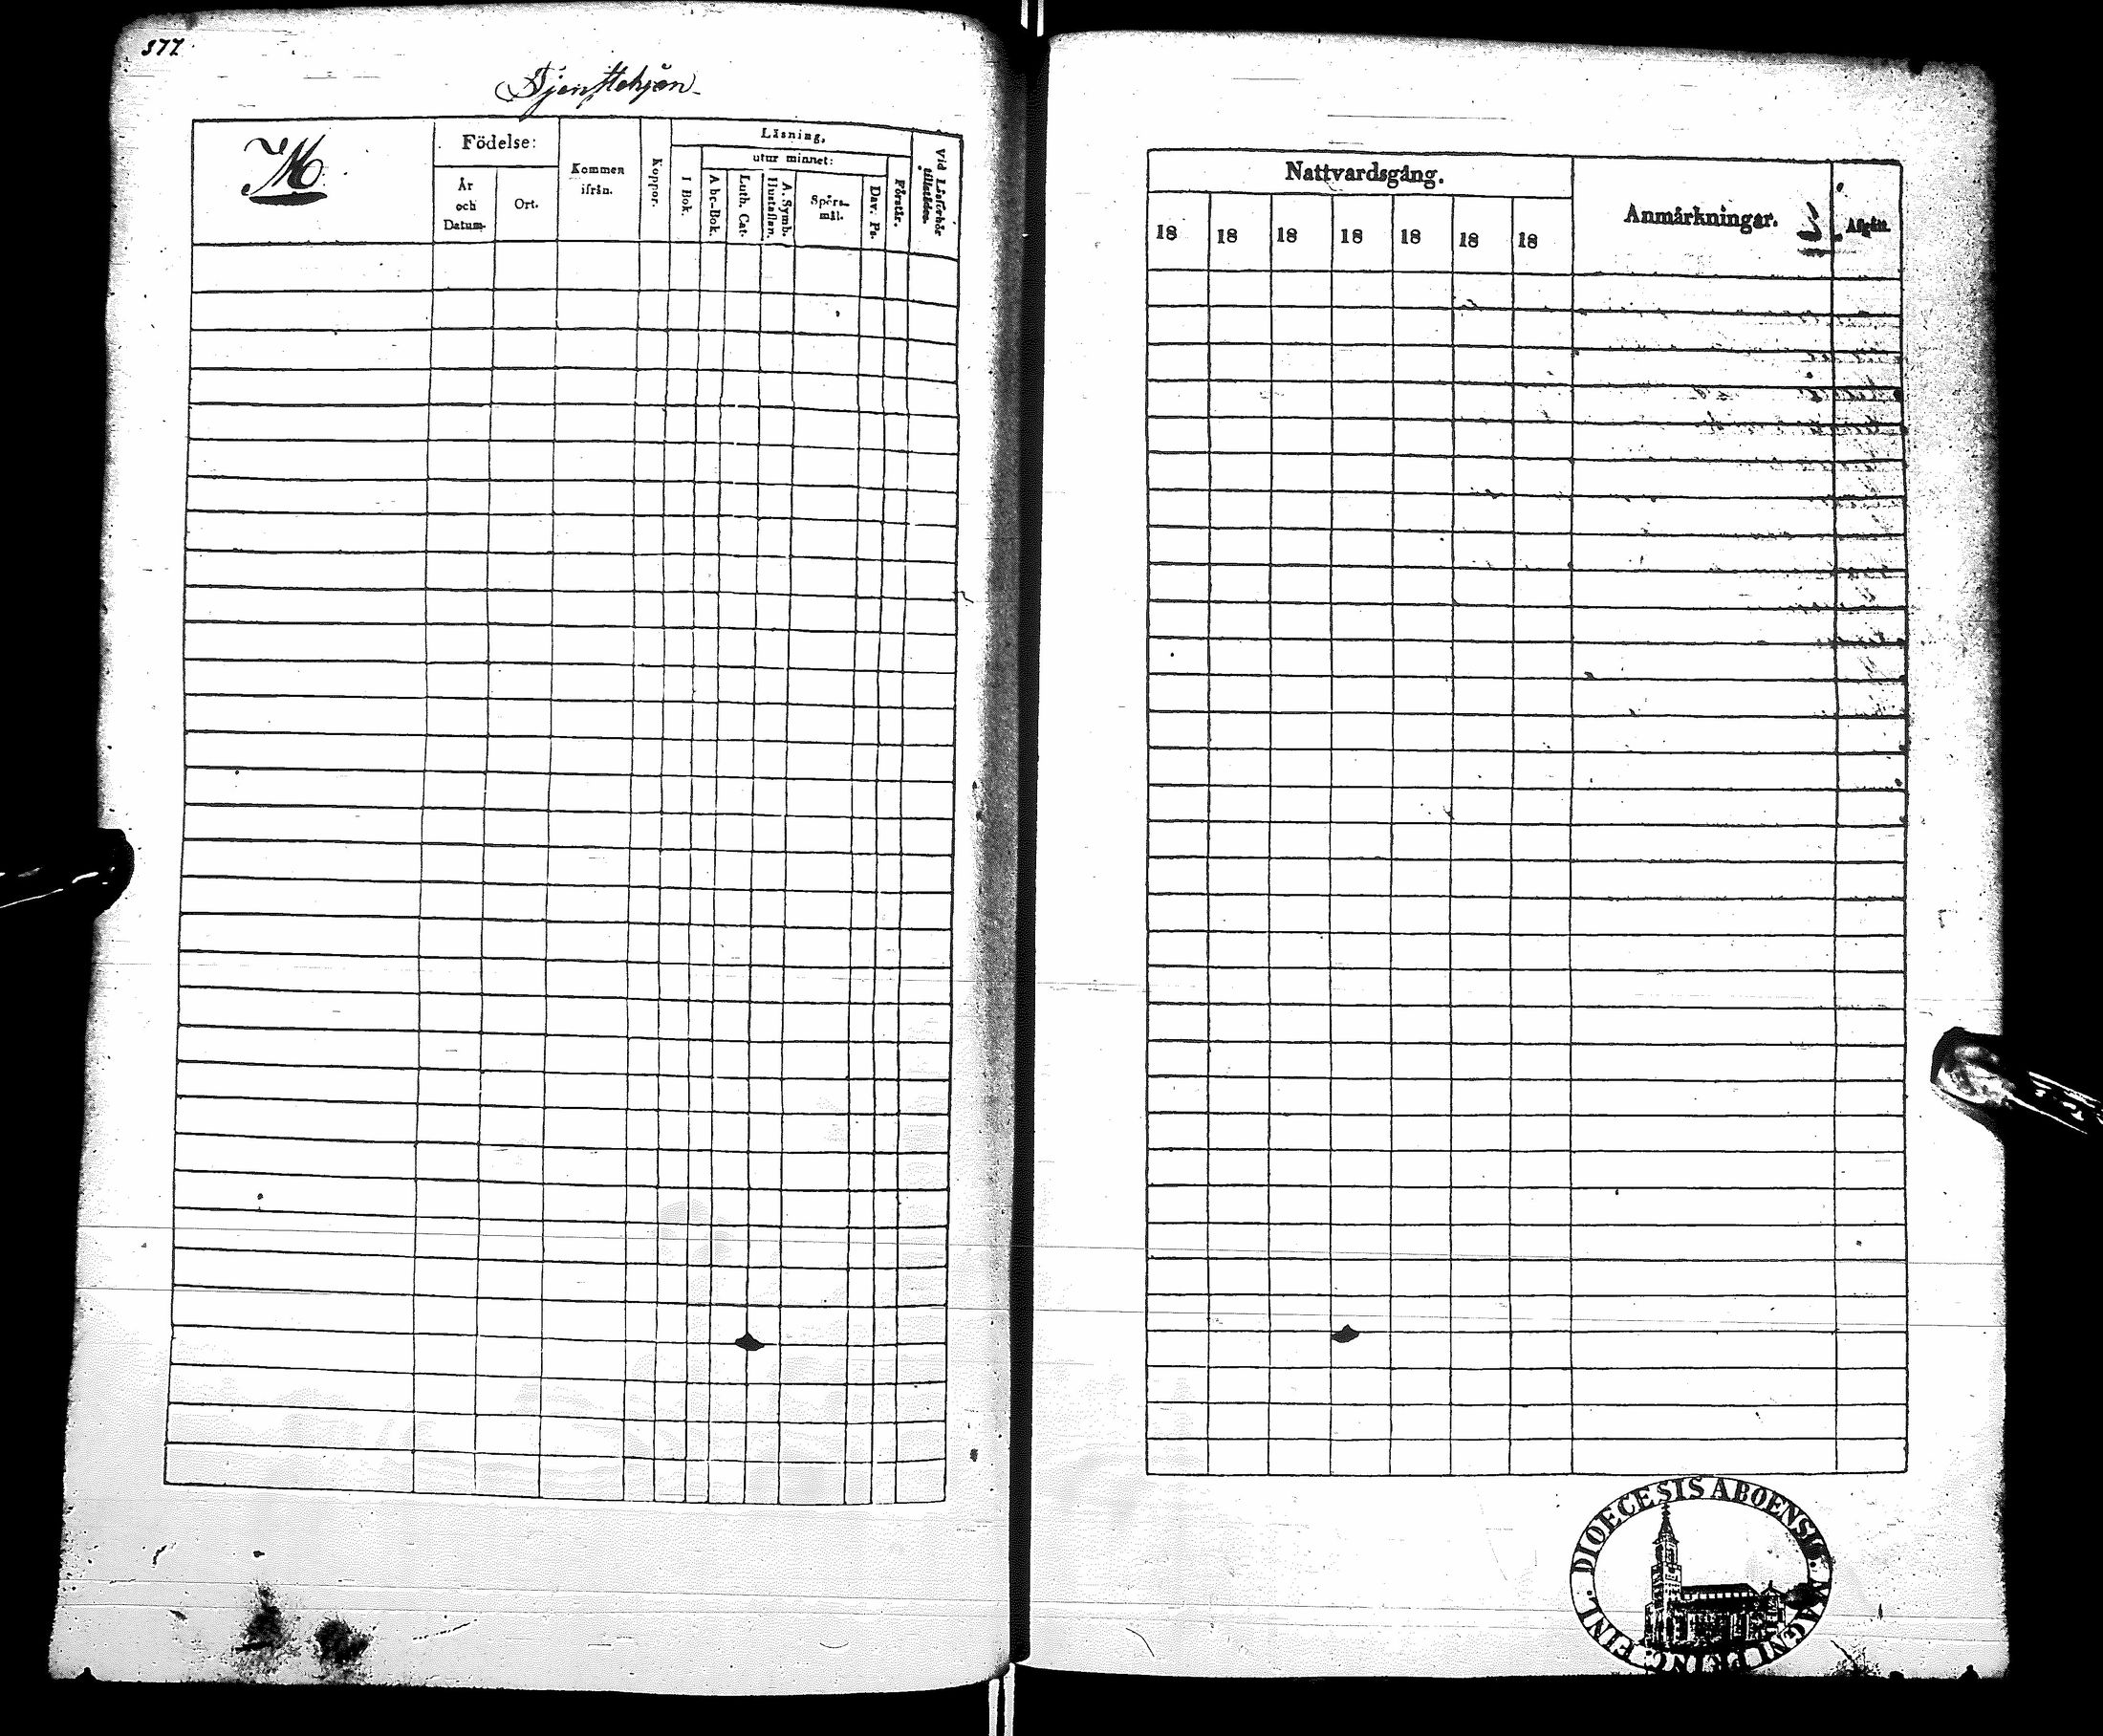 377.
Tjenstehjon
M.
Födelse:
År
och
Datum.
Ort.
Kommen
ifrån.
Koppor.
Läsning.
I Bok.
utur minnet:
Abc-Bok.
Luth. Cat.
A. Symb.
Hustaflan.
Spörs-
mål.
Dav. Ps.
Förstår.
Vid Läsförhör
tillstädes.
Nattvardsgång.
18 18 18 18 18 18 18
Anmärkningar.
Afgått.
DIOECESIS ABOENSIS. MAGNI PRINC. FINL.